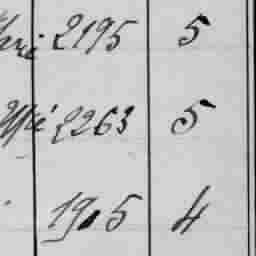 2195 5
2263 5
1905 4